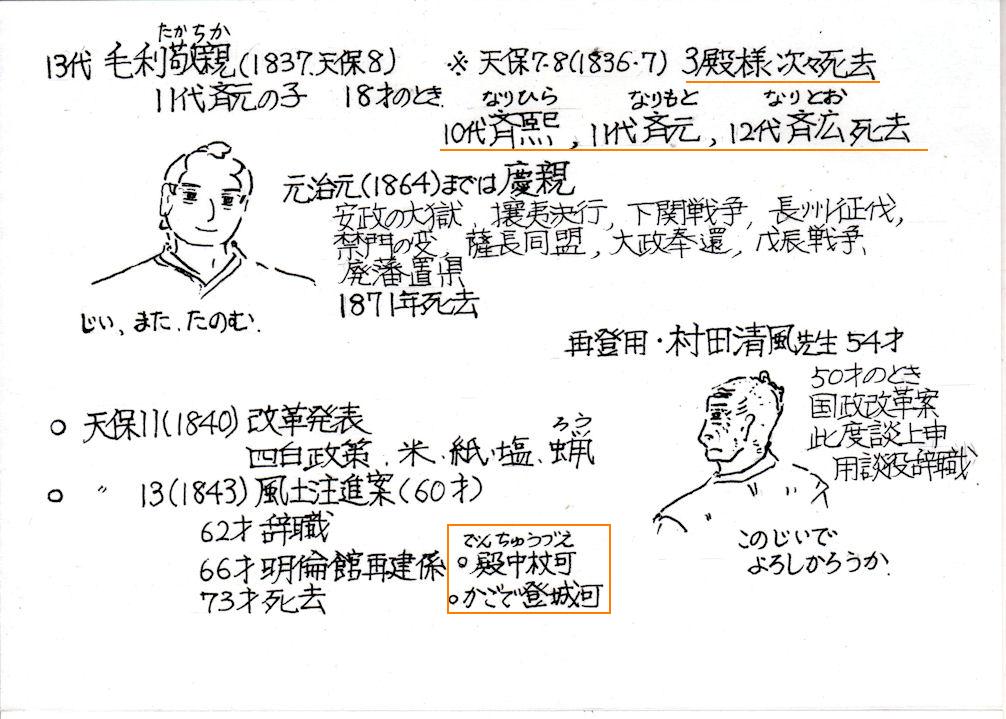 たかちか
13代 毛利敬親(1837.天保8) ※ 天保7.8(1836.7) 3殿様次々死去
11代斉元の子 18才のとき.
なりひら なりもと なりとお
10代斉熙, 11代斉元, 12代斉広死去
元治元(1864)までは慶親
安政の大獄, 攘夷決行, 下関戦争, 長州征伐,
禁門の変, 薩長同盟, 大政奉還, 戊辰戦争,
廃藩置県
1871年死去
じい、また、たのむ.
再登用・村田清風先生 54才
50才のとき
国政改革案
此度談上申
用談役辞職
このじいで
よろしかろうか.
○ 天保11(1840) 改革発表
ろう
四白政策. 米・紙・塩・蝋
○ 〃 13(1843) 風土注進案(60才)
62才 辞職
66才 明倫館再建係
73才 死去
でんちゅうづえ
○殿中杖可
○かごで登城可